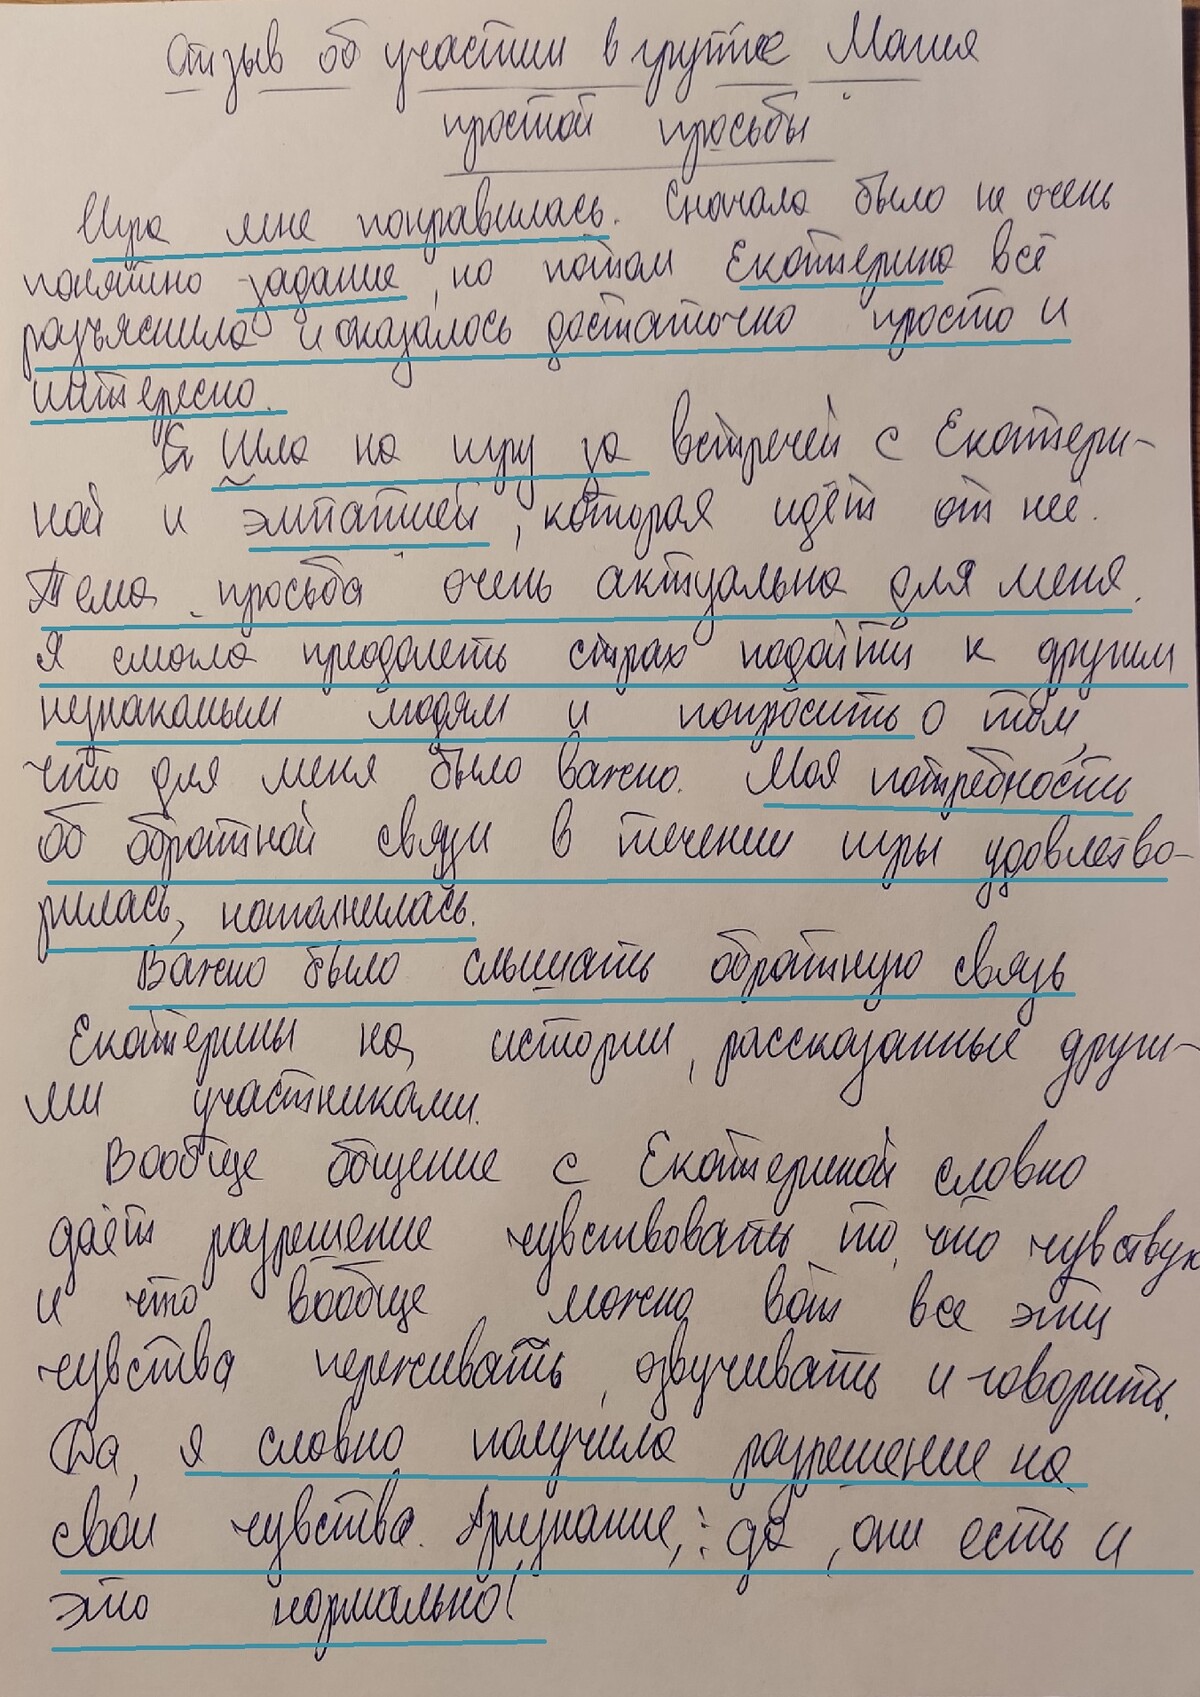 Отзыв об участии в группе Магия
простой просьбы
Игра мне понравилась. Сначала было не очень
понятно задание, но потом Екатерина всё
разъяснила и оказалось достаточно просто и
интересно.
Я шла на игру за встречей с Екатери-
ной и эмпатией, которая идёт от неё.
Тема просьба очень актуально для меня.
Я смогла преодолеть страх подойти к другим
незнакомым людям и попросить о том,
что для меня было важно. Моя потребность
об обратной связи в течении игры удовлетво-
рилась, наполнилась.
Важно было слышать обратную связь
Екатерины на истории, рассказанные други-
ми участниками.
Вообще общение с Екатериной словно
даёт разрешение чувствовать то, что чувствую
и что вообще можно вот все эти
чувства переживать, озвучивать и говорить.
Да, я словно получила разрешение на
свои чувства. Признание,: да, они есть и
это нормально!